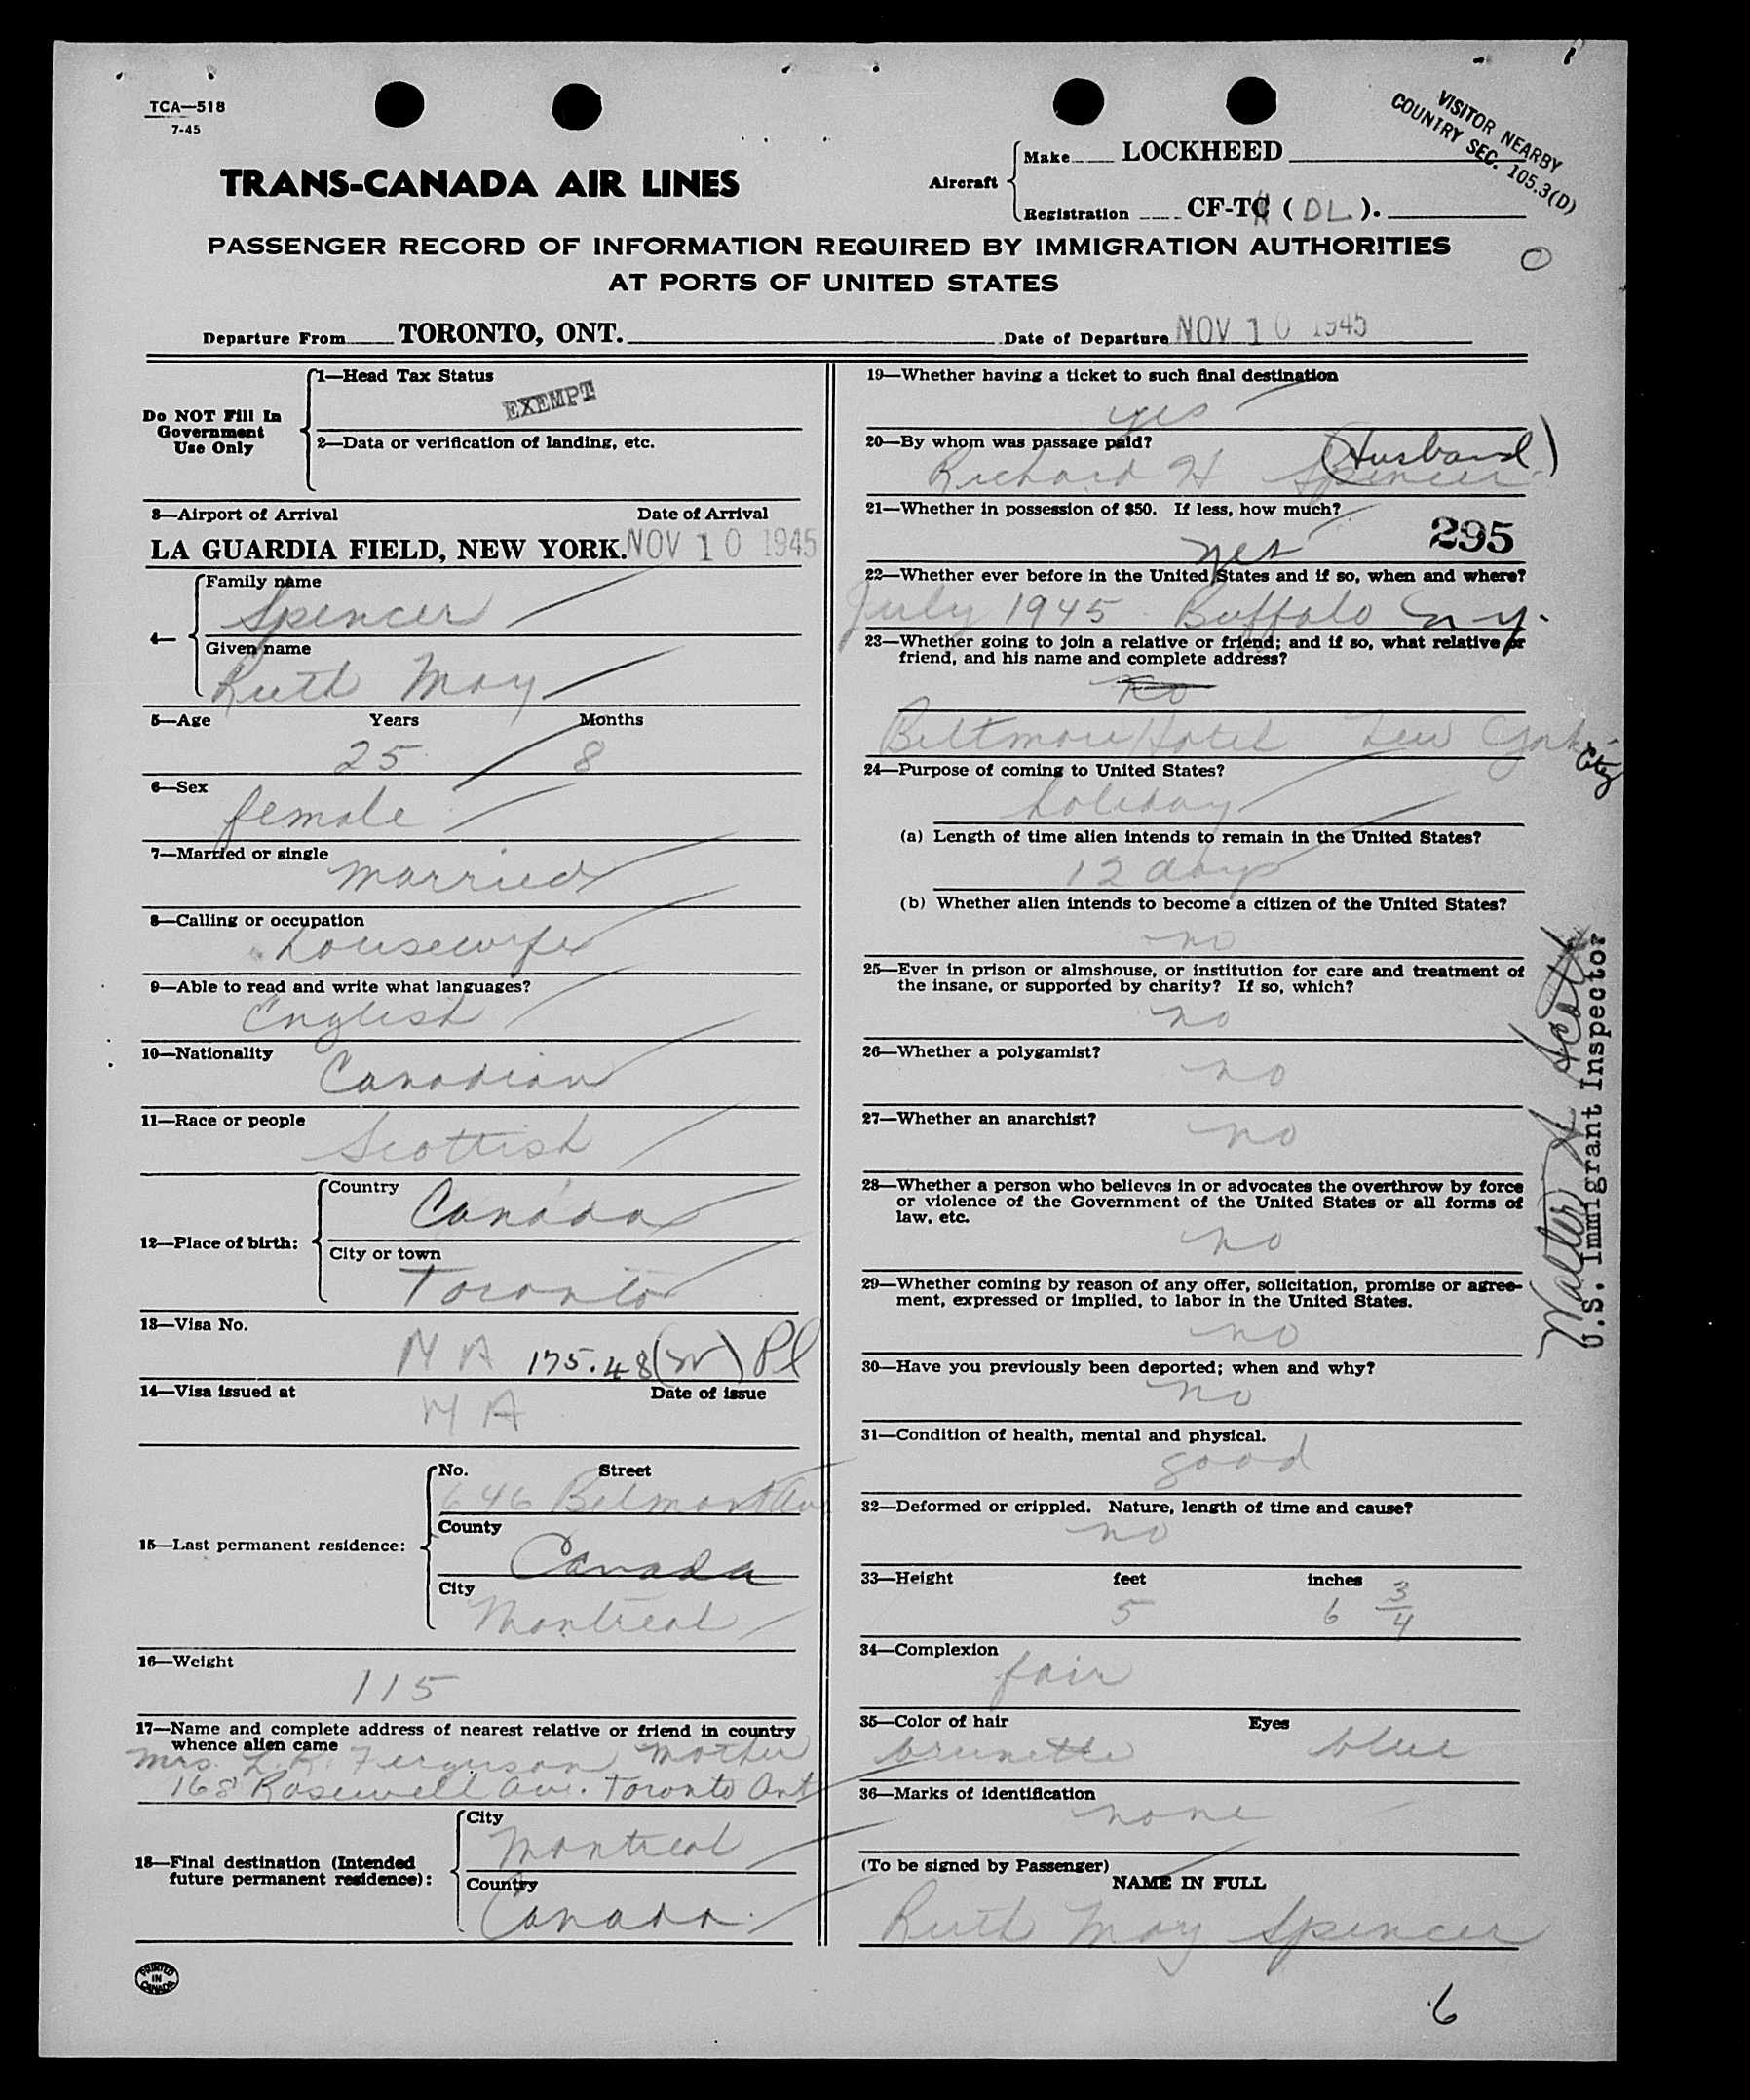 TCA—518
7-45
VISITOR NEARBY
COUNTRY SEC. 105.3(D)
TRANS-CANADA AIR LINES
Aircraft
Make LOCKHEED
Registration CF-T ( DL ).
PASSENGER RECORD OF INFORMATION REQUIRED BY IMMIGRATION AUTHORITIES
AT PORTS OF UNITED STATES
Departure From TORONTO, ONT. Date of Departure NOV 10 1945
Do NOT Fill In
Government
Use Only
1—Head Tax Status
EXEMPT
2—Data or verification of landing, etc.
3—Airport of Arrival Date of Arrival
LA GUARDIA FIELD, NEW YORK. NOV 10 1945
4—
Family name
Spencer
Given name
Ruth May
5—Age Years Months
25 8
6—Sex
female
7—Married or single
married
8—Calling or occupation
housewife
9—Able to read and write what languages?
English
10—Nationality
Canadian
11—Race or people
Scottish
12—Place of birth:
Country
Canada
City or town
Toronto
13—Visa No.
N A 175.48 Pl
14—Visa issued at Date of issue
N A
15—Last permanent residence:
No. Street
646 Belmont Ave
County
Canada
City
Montreal
16—Weight
115
17—Name and complete address of nearest relative or friend in country
whence alien came
Mrs. L.R. Ferguson Mother
168 Rosewell Ave. Toronto Ont
18—Final destination (Intended
future permanent residence):
City
Montreal
Country
Canada
19—Whether having a ticket to such final destination
yes
20—By whom was passage paid?
(Husband)
Richard H Spencer
21—Whether in possession of $50. If less, how much?
yes 295
22—Whether ever before in the United States and if so, when and where?
July 1945 Buffalo N.Y.
23—Whether going to join a relative or friend; and if so, what relative or
friend, and his name and complete address?
no
Biltmore Hotel New York City
24—Purpose of coming to United States?
holiday
(a) Length of time alien intends to remain in the United States?
12 days
(b) Whether alien intends to become a citizen of the United States?
no
25—Ever in prison or almshouse, or institution for care and treatment of
the insane, or supported by charity? If so, which?
no
26—Whether a polygamist?
no
27—Whether an anarchist?
no
28—Whether a person who believes in or advocates the overthrow by force
or violence of the Government of the United States or all forms of
law, etc.
no
29—Whether coming by reason of any offer, solicitation, promise or agree-
ment, expressed or implied, to labor in the United States.
no
30—Have you previously been deported; when and why?
no
31—Condition of health, mental and physical.
good
32—Deformed or crippled. Nature, length of time and cause?
no
33—Height feet inches
5 6 3/4
34—Complexion
fair
35—Color of hair Eyes
brunette blue
36—Marks of identification
none
(To be signed by Passenger)
NAME IN FULL
Ruth May Spencer
Walter Scott
U.S. Immigrant Inspector
PRINTED
IN
CANADA
6